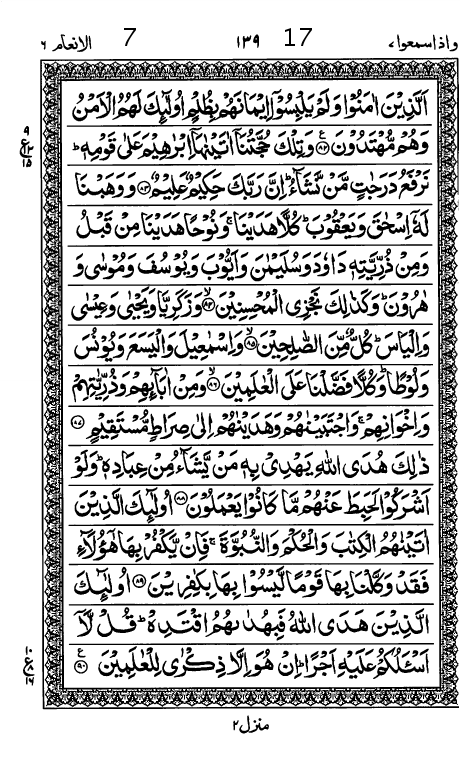 واذاسمعوا٧ ١٣٩ 17 7 الانعام ٦
اَلَّذِيْنَ اٰمَنُوْا وَلَمْ يَلْبِسُوْۤا اِيْمَانَهُمْ بِظُلْمٍ اُولٰٓئِكَ لَهُمُ الْاَمْنُ
وَهُمْ مُّهْتَدُوْنَ ﴿٨٢﴾ وَتِلْكَ حُجَّتُنَاۤ اٰتَيْنٰهَاۤ اِبْرٰهِيْمَ عَلٰى قَوْمِهٖ ؕ
نَرْفَعُ دَرَجٰتٍ مَّنْ نَّشَآءُ ؕ اِنَّ رَبَّكَ حَكِيْمٌ عَلِيْمٌ ﴿٨٣﴾ وَوَهَبْنَا
لَهٗۤ اِسْحٰقَ وَيَعْقُوْبَ ؕ كُلًّا هَدَيْنَا ۚ وَنُوْحًا هَدَيْنَا مِنْ قَبْلُ
وَمِنْ ذُرِّيَّتِهٖ دَاوٗدَ وَسُلَيْمٰنَ وَاَيُّوْبَ وَيُوْسُفَ وَمُوْسٰى وَ
هٰرُوْنَ ؕ وَكَذٰلِكَ نَجْزِى الْمُحْسِنِيْنَ ﴿٨٤﴾ وَزَكَرِيَّا وَيَحْيٰى وَعِيْسٰى
وَاِلْيَاسَ ؕ كُلٌّ مِّنَ الصّٰلِحِيْنَ ﴿٨٥﴾ وَاِسْمٰعِيْلَ وَالْيَسَعَ وَيُوْنُسَ
وَلُوْطًا ؕ وَكُلًّا فَضَّلْنَا عَلَى الْعٰلَمِيْنَ ﴿٨٦﴾ وَمِنْ اٰبَآئِهِمْ وَذُرِّيّٰتِهِمْ
وَاِخْوَانِهِمْ ۚ وَاجْتَبَيْنٰهُمْ وَهَدَيْنٰهُمْ اِلٰى صِرَاطٍ مُّسْتَقِيْمٍ ﴿٨٧﴾
ذٰلِكَ هُدَى اللّٰهِ يَهْدِىْ بِهٖ مَنْ يَّشَآءُ مِنْ عِبَادِهٖ ؕ وَلَوْ
اَشْرَكُوْا لَحَبِطَ عَنْهُمْ مَّا كَانُوْا يَعْمَلُوْنَ ﴿٨٨﴾ اُولٰٓئِكَ الَّذِيْنَ
اٰتَيْنٰهُمُ الْكِتٰبَ وَالْحُكْمَ وَالنُّبُوَّةَ ۚ فَاِنْ يَّكْفُرْ بِهَا هٰٓؤُلَآءِ
فَقَدْ وَكَّلْنَا بِهَا قَوْمًا لَّيْسُوْا بِهَا بِكٰفِرِيْنَ ﴿٨٩﴾ اُولٰٓئِكَ
الَّذِيْنَ هَدَى اللّٰهُ فَبِهُدٰىهُمُ اقْتَدِهْ ؕ قُلْ لَّاۤ
اَسْـَٔلُكُمْ عَلَيْهِ اَجْرًا ؕ اِنْ هُوَ اِلَّا ذِكْرٰى لِلْعٰلَمِيْنَ ﴿٩٠﴾ ع
٩
ع
١٥
١٠
ع
١٦
منزل ٢